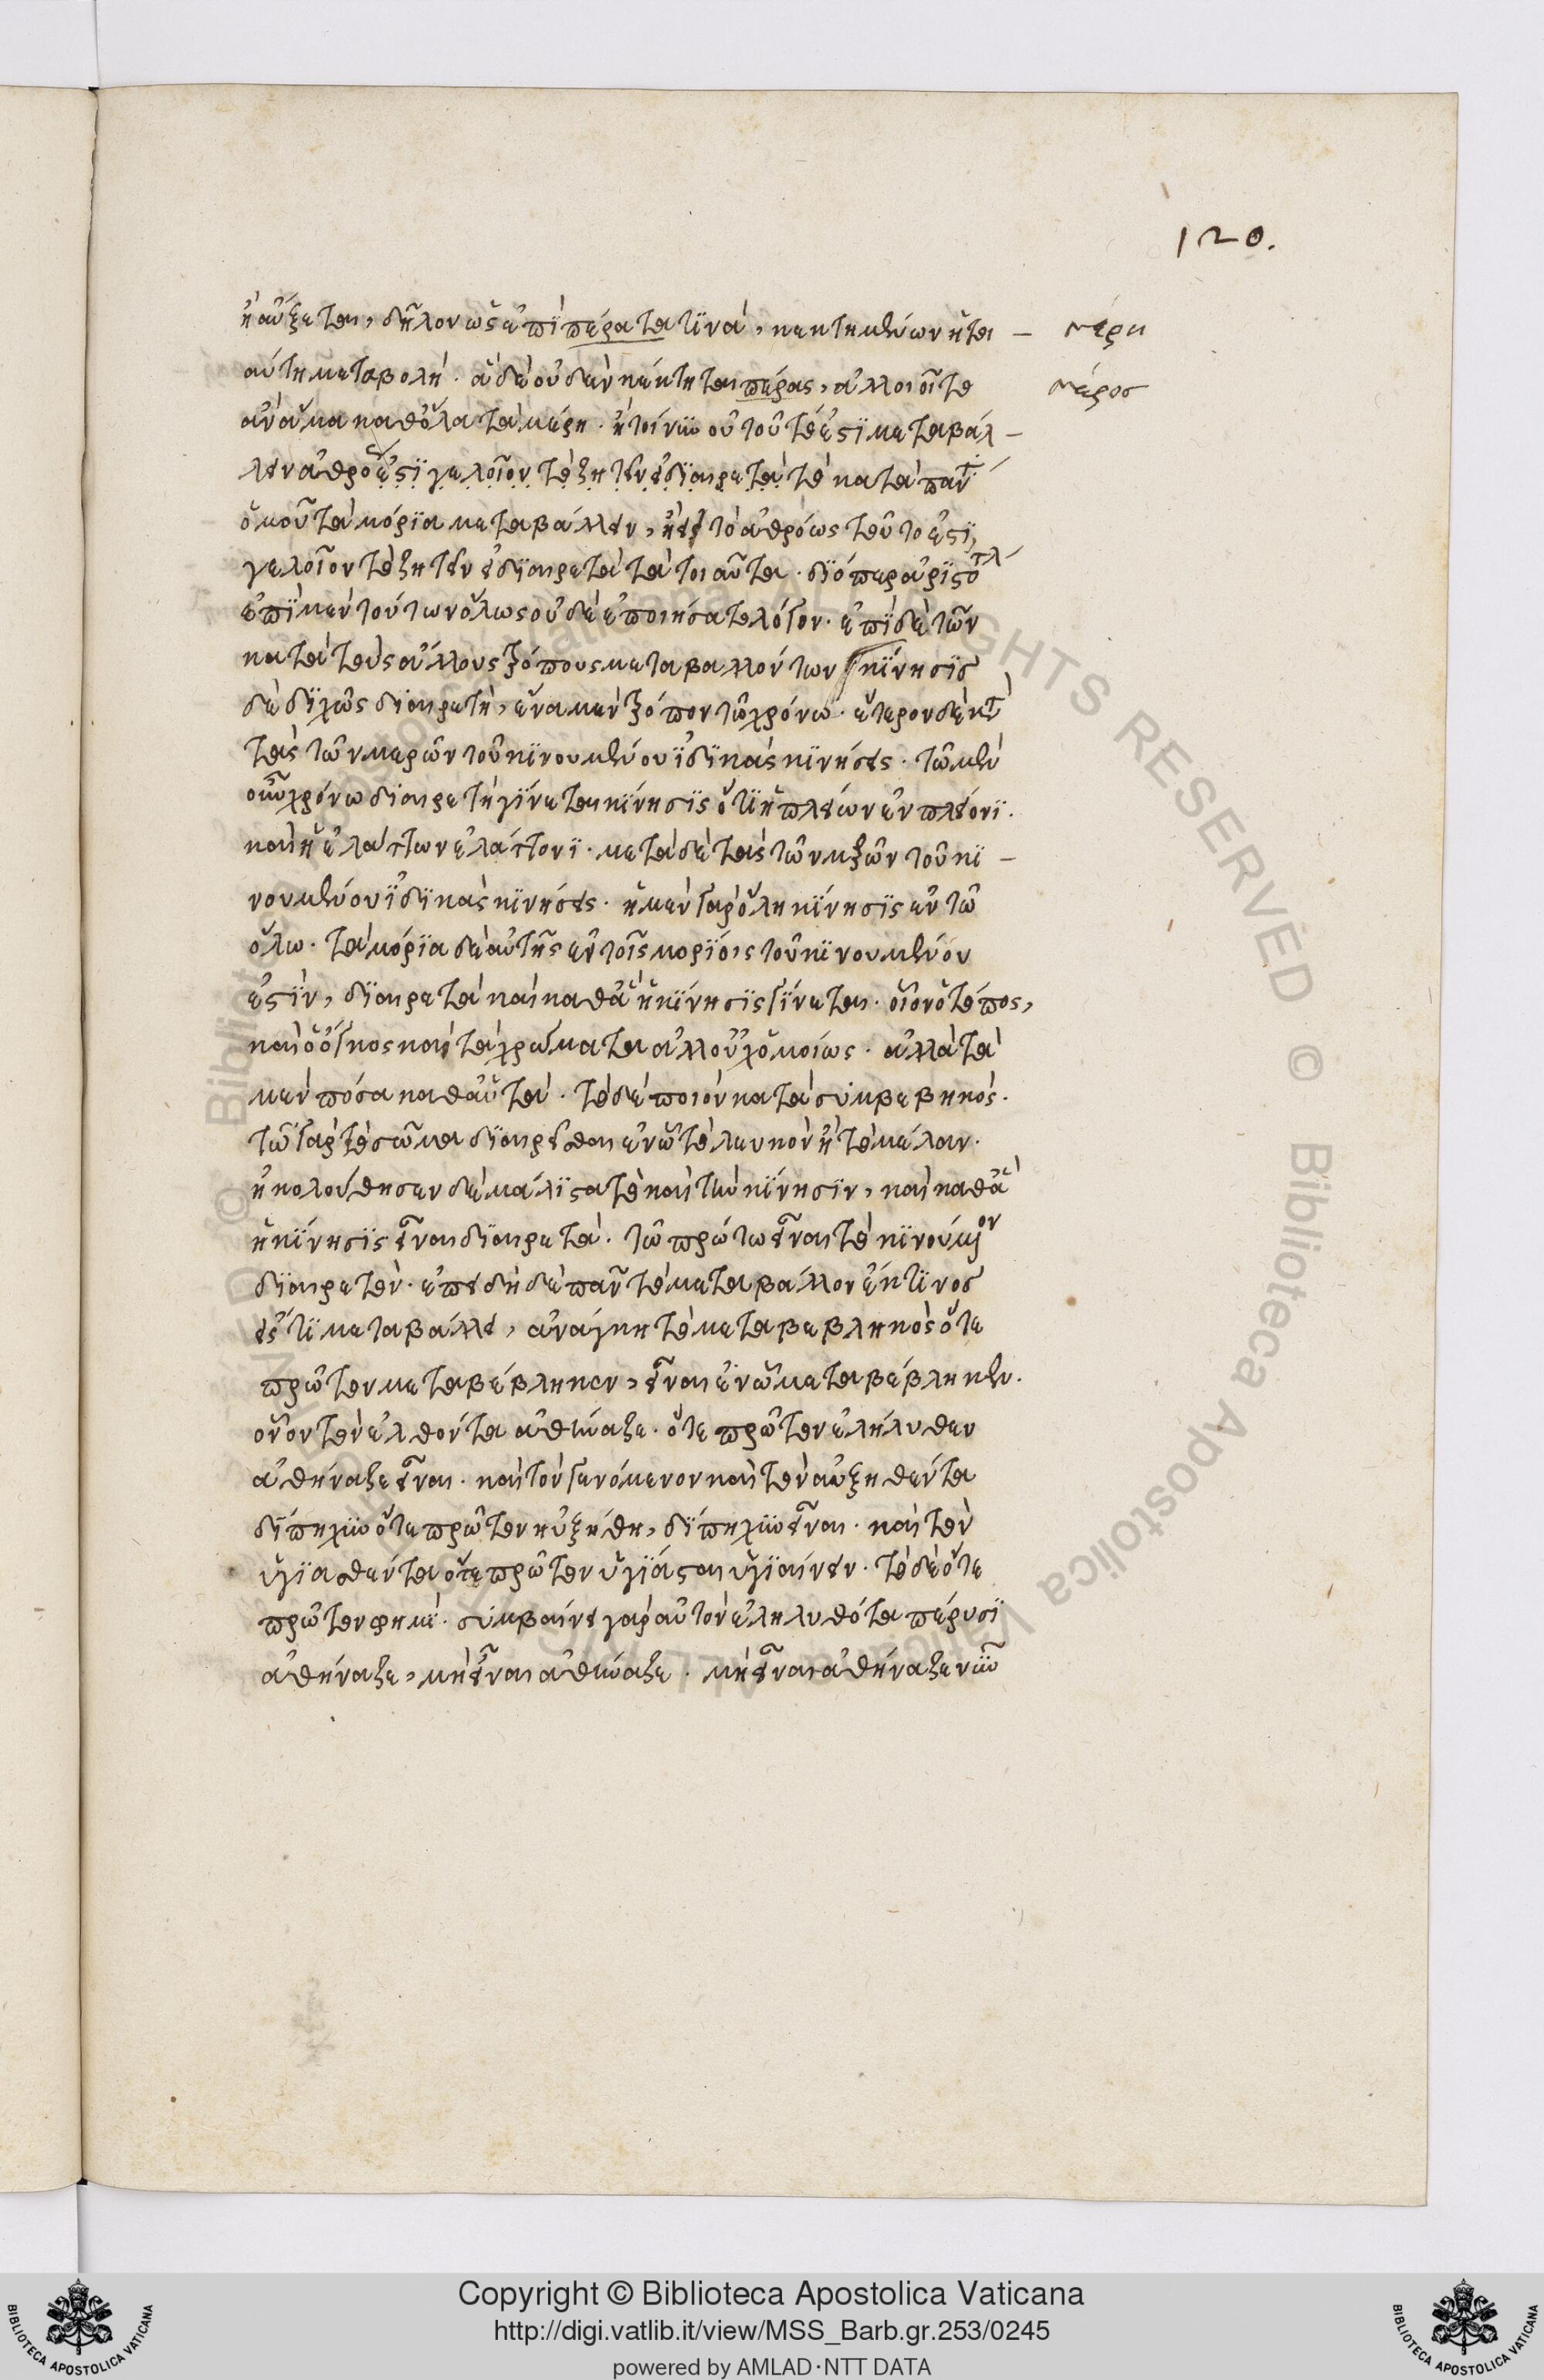 120.
ἢ αὔξεται, δῆλον ὡς ἐπὶ πέρατα τινὰ, κεκτημένων ἧται – μέρη
αύτη μεταβολή. ἃ δὲ οὐδὲν κέκτηται πέρας, ἀλλοιοῖτε μέρος
ἂν ἅμα καθόλα τὰ μέρη. ἢ τοίνυν οὐ τοῦτό ἐστι μεταβάλ–
λειν ἀθρόως, ἐστὶ γελοῖον τὸ ζητεῖν εἰ διαιρετὰ τὸ κατὰ πᾶν
ὁμοῦ τὰ μόρια μεταβάλλειν, ἢ εἰ τὸ ἀθρόως τοῦτο ἐστὶ,
γελοῖον τὸ ζητεῖν εἰ διαιρετὰ τὰ τοιαῦτα. διόπερ ἀριστοτλ
ἐπὶ μὲν τούτων ὅλως οὐδὲ ἐποιήσατο λόγον. ἐπὶ δὲ τῶν
κατὰ τοὺς ἄλλους τρόπους μεταβαλλόντων κίνησις
δὲ διχῶς διαιρετὴ, ἕνα μὲν τρόπον τῶ χρόνω. ἕτερον δὲ κτ
τὰς τῶν μερῶν τοῦ κινουμένου ἰδικὰς κινήσεις. τῶ μὲν
οὖν χρόνω διαιρετὴ γίνεται κίνησις ὅτι ἡ πλείων ἐν πλείονι.
καὶ ἡ ἐλάττων ἐλάττονι. μετὰ δὲ τὰς τῶν μερῶν τοῦ κι –
νουμένου ἰδικὰς κινήσεις. ἡ μὲν γὰρ ὅλη κίνησις ἐν τῶ
ὅλω. τὰ μόρια δὲ αὐτῆς ἐν τοῖς μορίοις τοῦ κινουμένου
ἐστὶν, διαιρετὰ καὶ καθἃ ἡ κίνησις γίνεται. οἷον ὁ τόπος,
καὶ ὁ ὄγκος καὶ τὰ χρώματα ἀλλ οὐχ ὁμοίως. ἀλλὰ τὰ
μὲν πόσα καθαὑτά. τὸ δὲ ποιὸν κατὰ συμβεβηκός.
τῶ γὰρ τὸ σῶμα διαιρεῖσθαι ἐν ὧ τὸ λευκὸν ἢ τὸ μέλαν.
ἠκολούθησεν δὲ μάλιστα τὸ καὶ τὴν κίνησιν, καὶ καθἃ
ἡ κίνησις εἶναι διαιρετά. τῶ πρώτω εἶναι τὸ κινούμενον
διαιρετόν. ἐπειδὴ δὲ πᾶν τὸ μεταβάλλον ἔκ τινος
εἴς τι μεταβάλλει, ἀνάγκη τὸ μεταβεβληκὸς ὅτε
πρῶτον μεταβέβληκεν, εἶναι ἐν ὧ μεταβέβληκεν.
οἷον τὸν ἐλθόντα ἀθήναζε. ὅτε πρῶτον ἐλήλυθεν
ἀθήναζε εἶναι. καὶ τὸν γενόμενον καὶ τὸν αὐξηθέντα
δίπηχυν ὅτε πρῶτον ηὐξήθη, δίπηχυν εἶναι. καὶ τὸν
ὑγιασθέντα ὅτε πρῶτον ὑγίασται ὑγιαίνειν. τὸ δὲ ὅτε
πρῶτον φημί. συμβαίνει γὰρ αὐτὸν ἐληλυθότα πέρυσι
ἀθήναζε, μὴ εἶναι ἀθήναζε. μὴ εἶναι ἀθήναζε νῦν
Copyright © Biblioteca Apostolica Vaticana
http://digi.vatlib.it/view/MSS_Barb.gr.253/0245
powered by AMLAD·NTT DATA